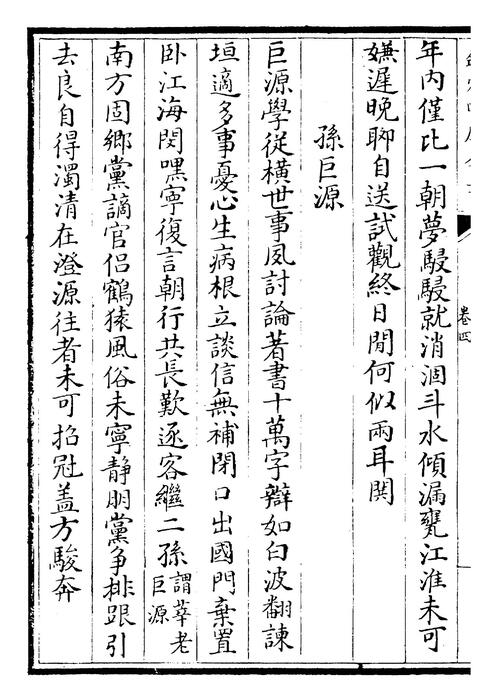 年内僅比一朝夢駸駸就消涸斗水傾漏甕江淮未可
嫌遲晚聊自送試觀終日閒何似兩耳閧
孫巨源
巨源學從横世事夙討論著書十萬字辯如白波翻諫
垣適多事憂心生病根立談信無補閉口出國門棄置
卧江海閔嘿寧復言朝行共長歎逐客繼二孫謂莘老巨源
南方固鄉黨謫官侣鶴猿風俗未寧静朋黨争排跟引
去良自得濁清在澄源往者未可招冠盖方駿奔
卷四